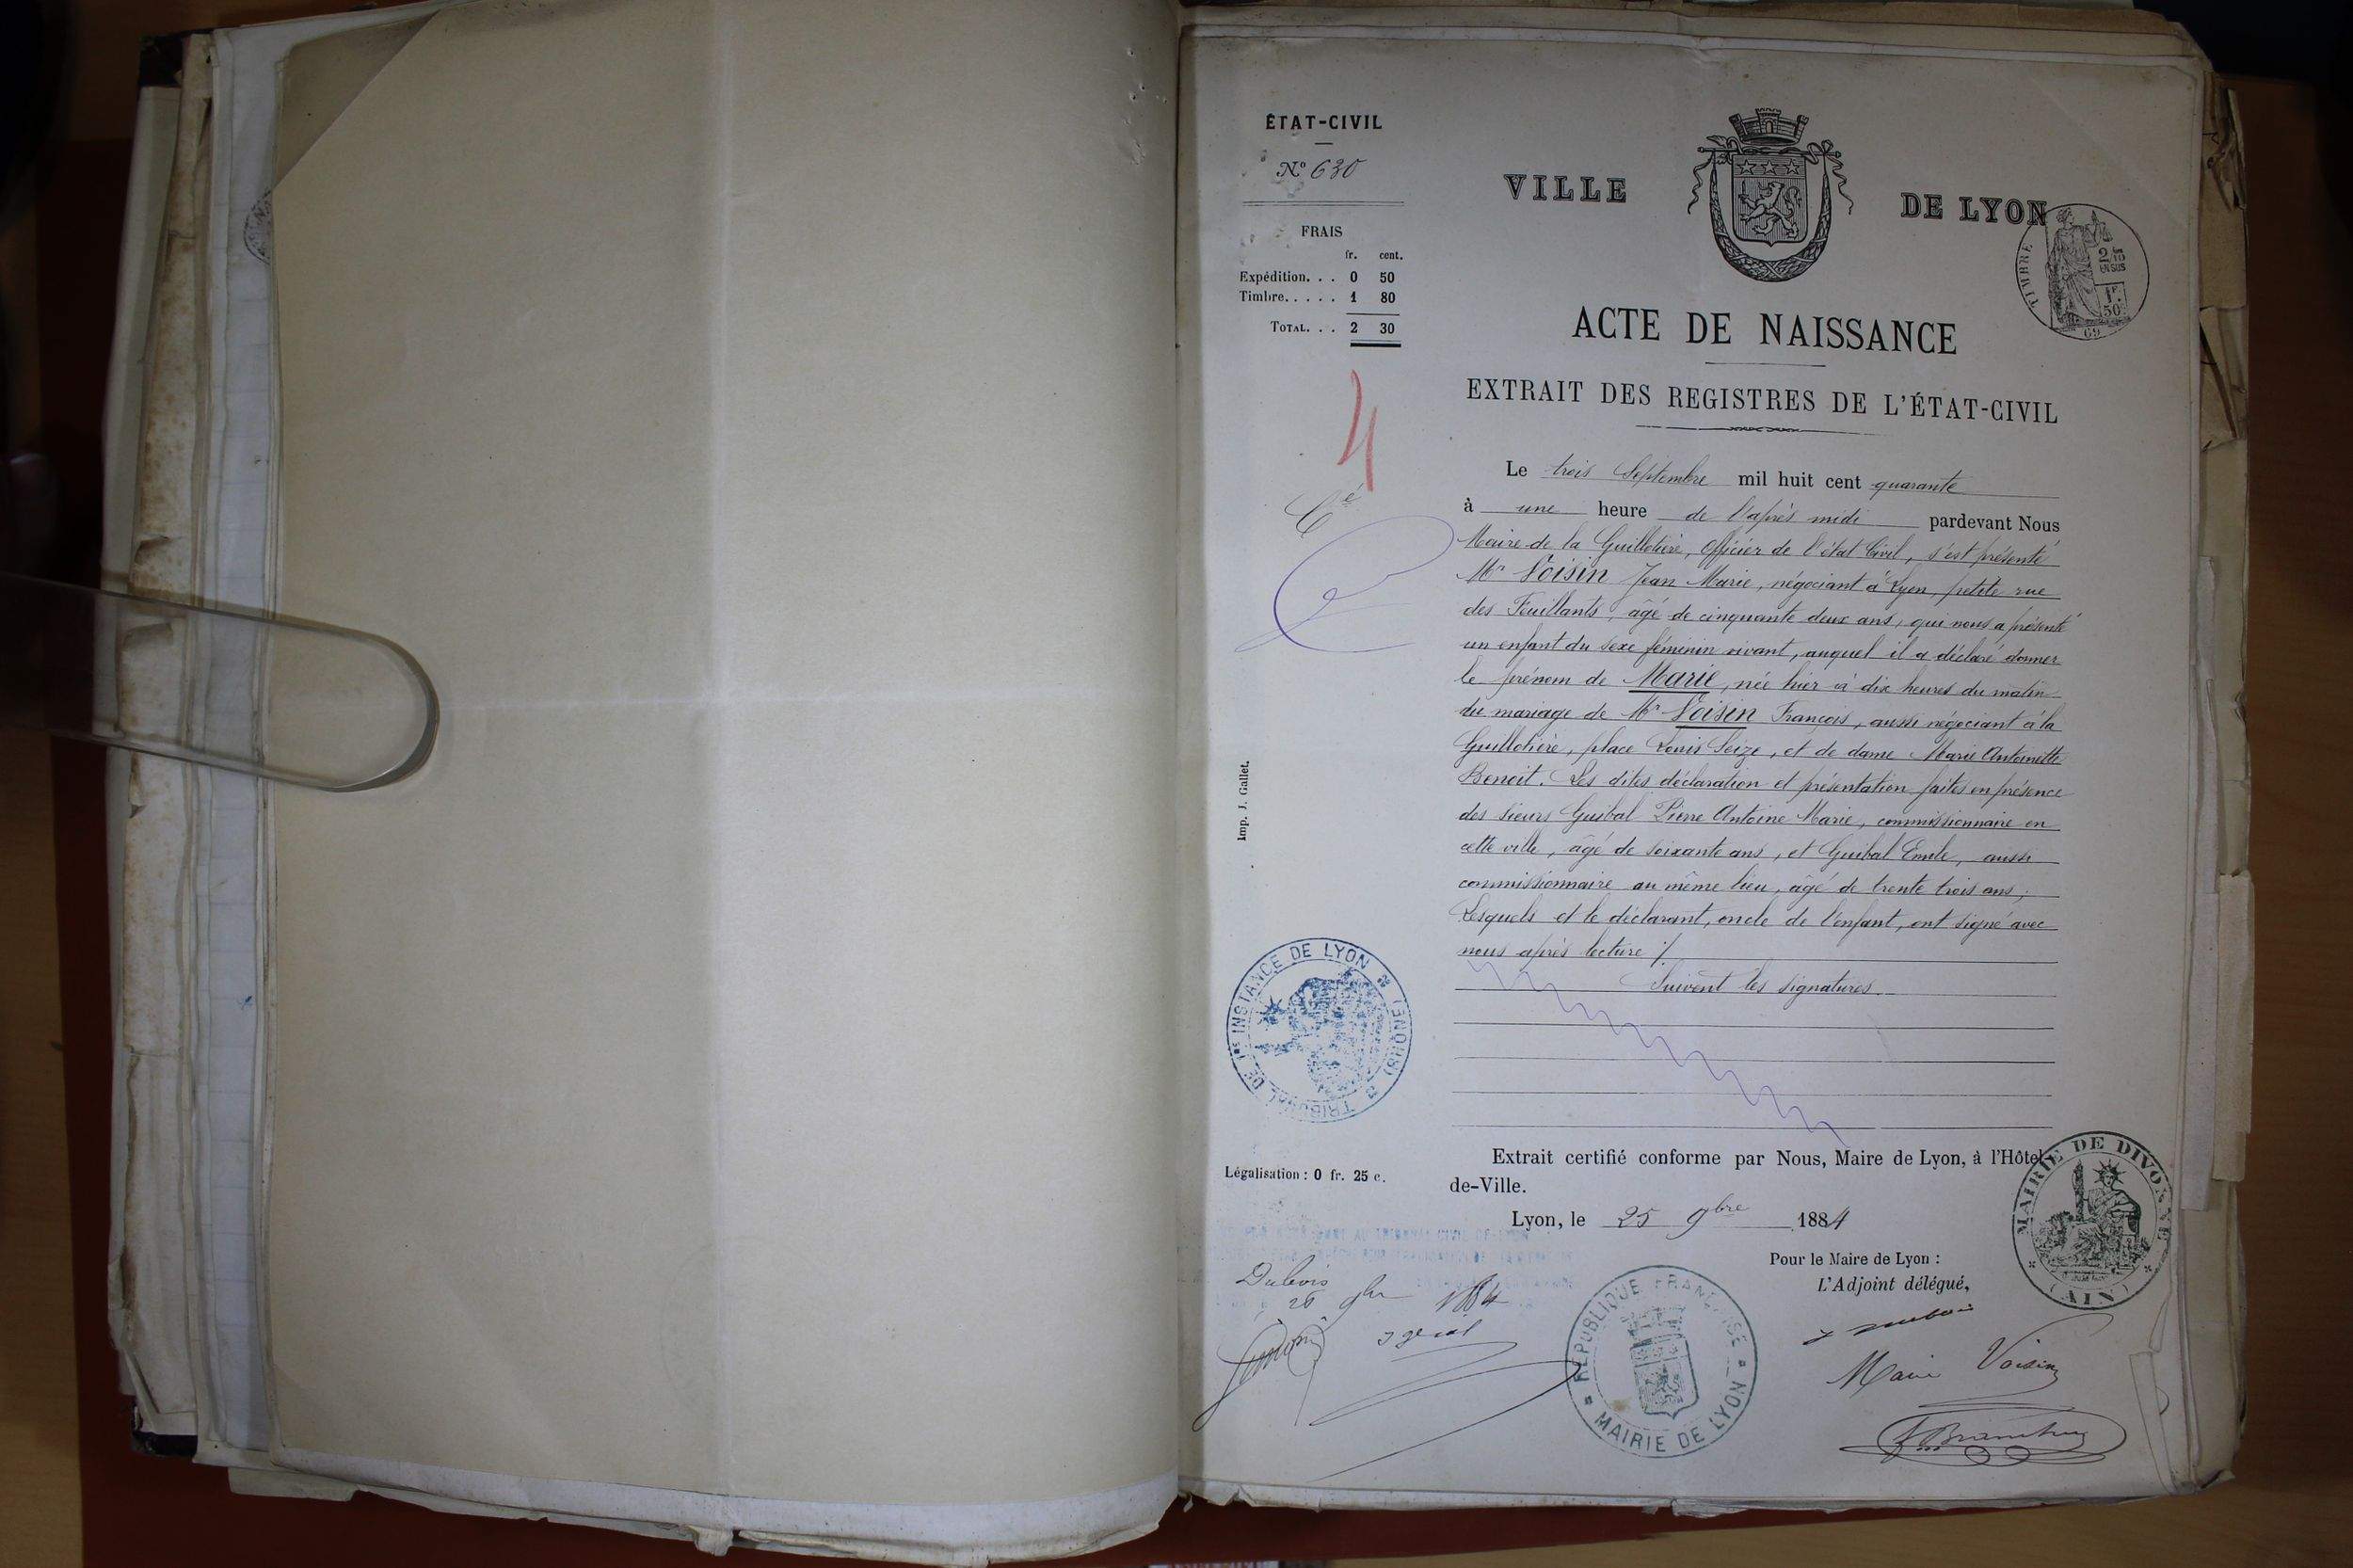 ÉTAT-CIVIL
N° 630
FRAIS
fr. cent.
Expédition. . . 0 50
Timbre. . . . . 1 80
TOTAL. . . 2 30
4
VILLE DE LYON
TIMBRE
2/10
EN SUS
1F.
50c
69
ACTE DE NAISSANCE
EXTRAIT DES REGISTRES DE L'ÉTAT-CIVIL
Le trois Septembre mil huit cent quarante
à une heure de l'après midi pardevant Nous
Maire de la Guillotière, Officier de l'état Civil, s'est présenté
Mr Voisin Jean Marie, négociant à Lyon, petite rue
des Feuillants, âgé de cinquante deux ans, qui nous a présenté
un enfant du sexe féminin vivant, auquel il a déclaré donner
le prénom de Marie, née hier à dix heures du matin
du mariage de Mr Voisin François, aussi négociant à la
Guillotière, place Louis Seize, et de dame Marie Antoinette
Benoit. Les dites déclaration et présentation faites en présence
des sieurs Guibal Pierre Antoine Marie, commissionnaire en
cette ville, âgé de soixante ans, et Guibal Emile, aussi
commissionnaire au même lieu, âgé de trente trois ans,
Lesquels et le déclarant, oncle de l'enfant, ont signé avec
nous après lecture ./.
Suivent les signatures
Imp. J. Gallet.
TRIBUNAL DE 1re INSTANCE DE LYON (RHÔNE)
Extrait certifié conforme par Nous, Maire de Lyon, à l'Hôtel-
de-Ville.
Légalisation : 0 fr. 25 c.
Lyon, le 25 9bre 1884
MAIRIE DE DIVONNE
(AIN)
Pour le Maire de Lyon :
L'Adjoint délégué,
Dubois
26 9bre 1884
RÉPUBLIQUE FRANÇAISE
MAIRIE DE LYON
Marie Voisin